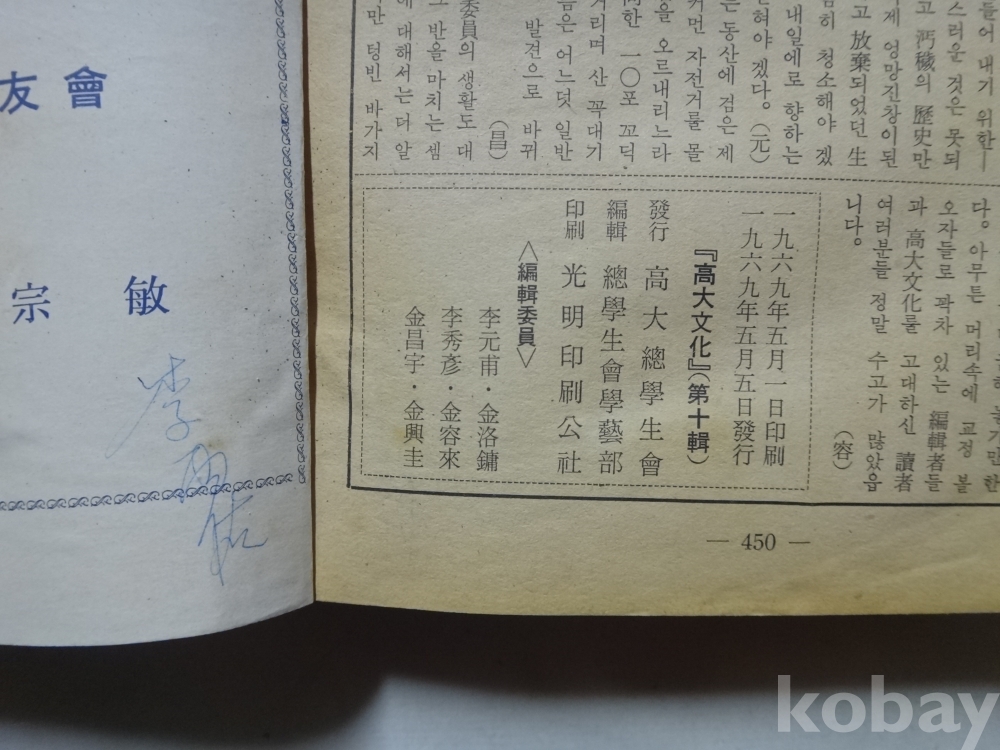 들어 내기 위한—
스러운 것은 못되
고 汚穢의 歷史만
제 엉망진창이된
고 放棄되었던 生
히 청소해야 겠
내일에로 향하는
혀야 겠다。(元)
는 동산에 검은 제
꺼먼 자전거를 몰
을 오르내리느라
한 一○포 꼬딕
거리며 산 꼭대기
음은 어느덧 일반
발견으로 바뀌
(昌)
委員의 생활도 대
그 반을 마치는 셈
에 대해서는 더 알
만 텅빈 바가지
다。 아무튼 머리속에 교정 볼
오자들로 꽉차 있는 編輯者들
과 高大文化를 고대하신 讀者
여러분들 정말 수고가 많았읍
니다。
(容)
一九六九年五月一日印刷
一九六九年五月五日發行
『高大文化』(第十輯)
發行 高大總學生會
編輯 總學生會學藝部
印刷 光明印刷公社
<編輯委員>
李元甫・金洛鏞
李秀彥・金容來
金昌宇・金興圭
— 450 —
友會
宗敏
李
kobay